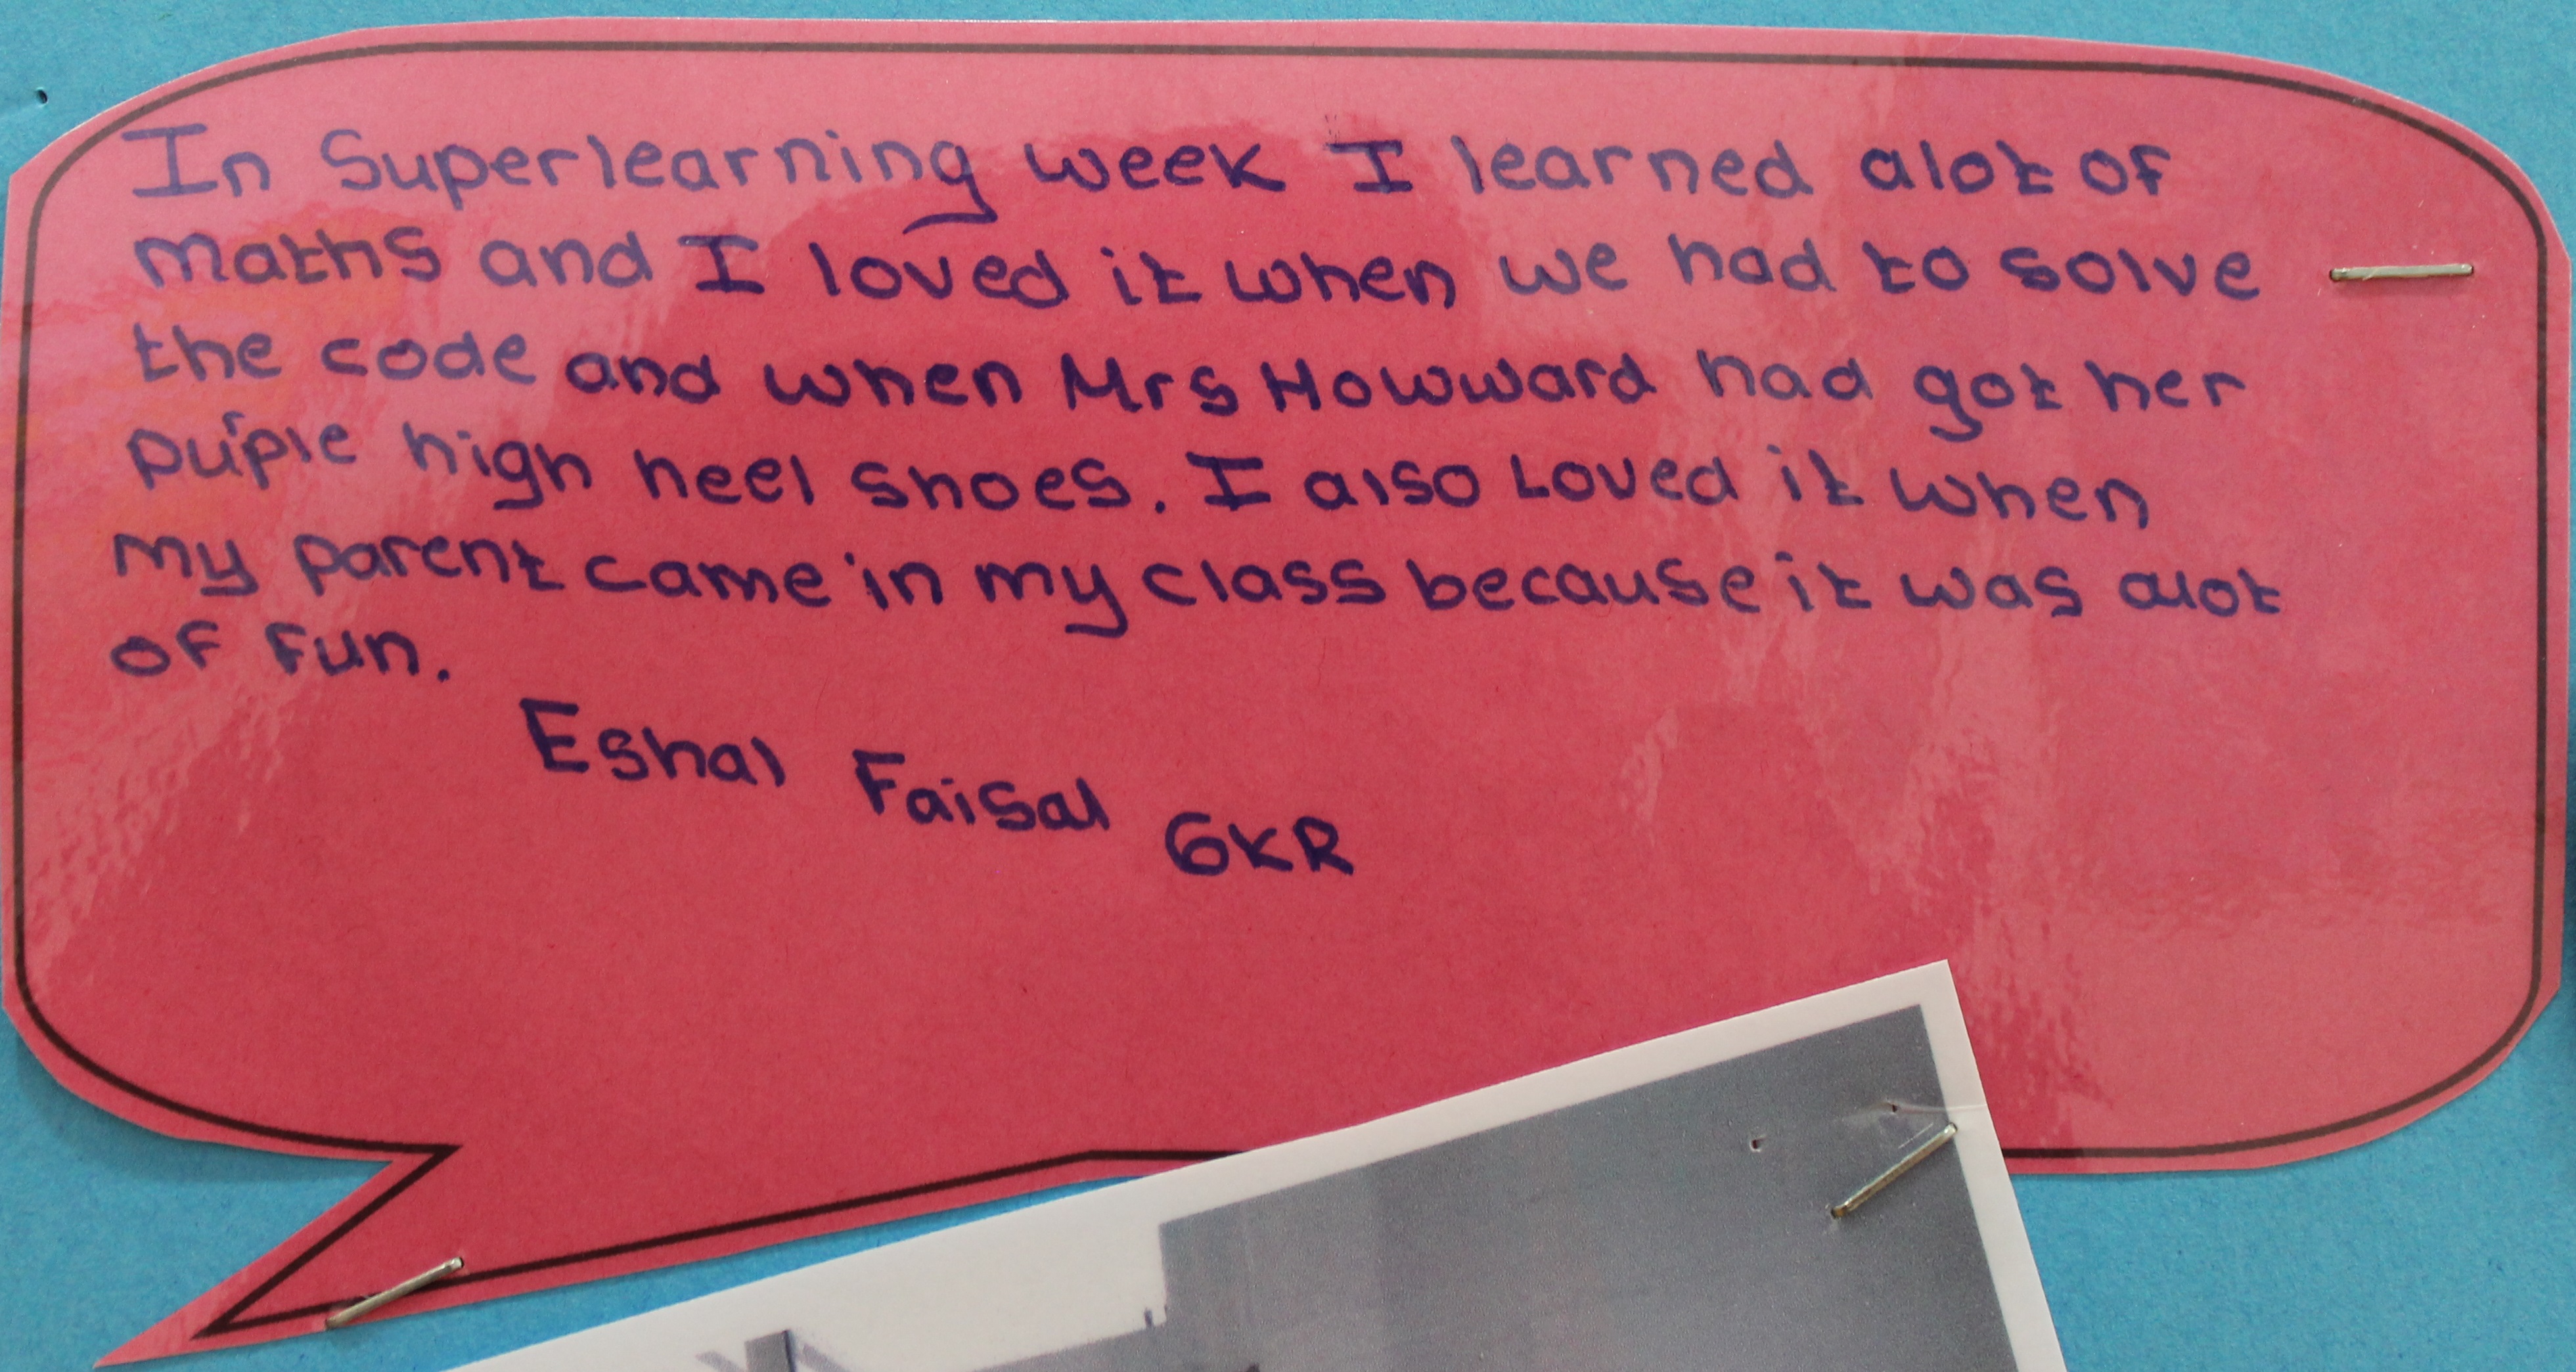 In Superlearning week I learned alot of
maths and I loved it when we had to solve
the code and when Mrs Howward had got her
purple high heel shoes. I also Loved it when
my parent came in my class because it was alot
of fun.
Eshal Faisal 6KR